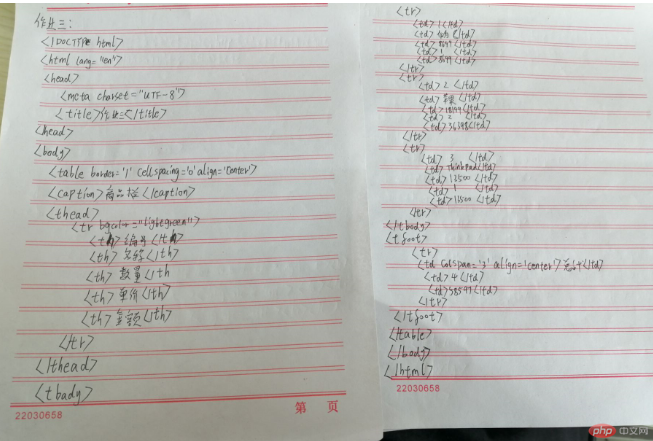 作业三:
<!DOCTYPE html>
<html lang="en">
<head>
<meta charset="UTF-8">
<title>作业三</title>
<head>
<body>
<table border='1' cellspacing='0' align='center'>
<caption>商品</caption>
<thead>
<tr bgcolor="lightgreen">
<th>编号</th>
<th>名称</th>
<th>数量</th
<th>单价</th>
<th>金额</th>
</tr>
</thead>
<tbady>
22030658
第 页
<tr>
<td>1</td>
</td>
</td>
<td>1 </td>
</td>
</tr>
<tr>
<td>2 </td>
<td>苹果 </td>
<td>18199</td>
<td>2 </td>
<td>36398</td>
</tr>
<tr>
<td>3 </td>
<td>thinkpad</td>
<td>13500 </td>
<td>1 </td>
<td>13500 </td>
<tr>
</tbody>
<tfoot>
<tr>
<td colspan='3' align='center'>总计</td>
<td>4</td>
<td>58597</td>
</tr>
</tfoot>
</table>
</body>
</html>
22030658
php 中文网